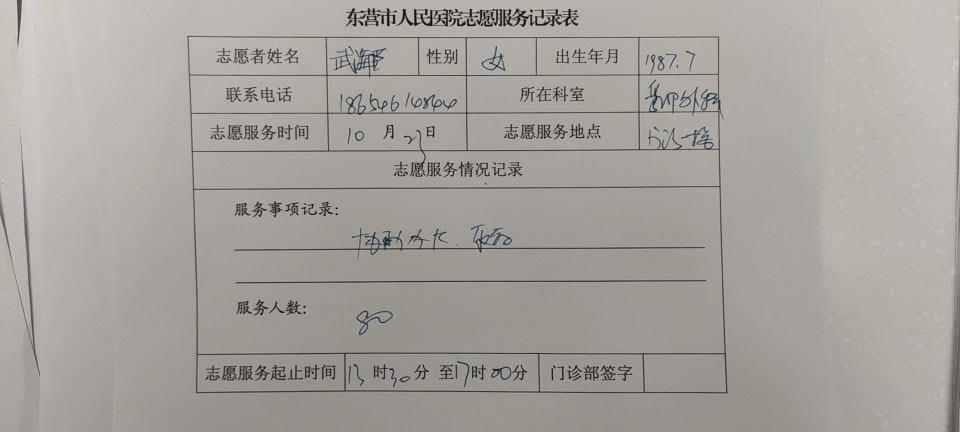 东营市人民医院志愿服务记录表
志愿者姓名 武海 性别 女 出生年月 1987.7
联系电话 18654614844 所在科室
志愿服务时间 10月23日 志愿服务地点 门诊一楼
志愿服务情况记录
服务事项记录:
协助办卡.
服务人数:
80
志愿服务起止时间 13时30分 至17时00分 门诊部签字